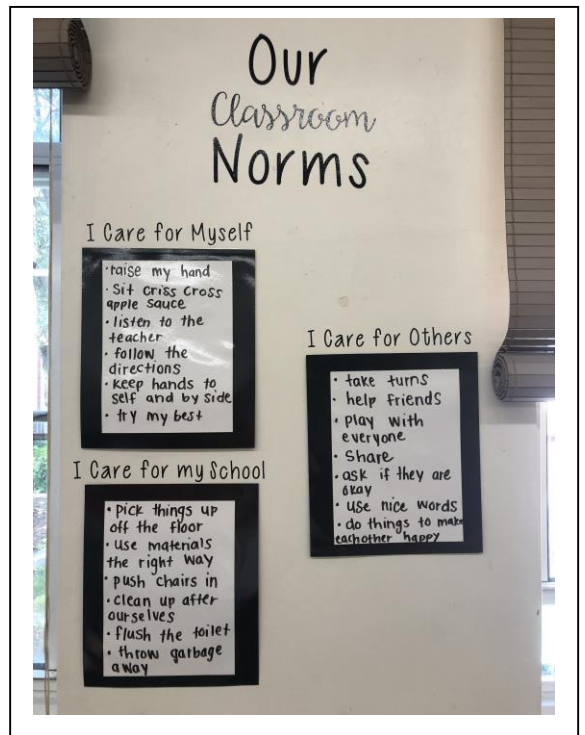 Our
Classroom
Norms
I Care for Myself
• raise my hand
• Sit criss cross
apple sauce
• listen to the
teacher
• follow the
directions
• keep hands to
self and by side
• try my best
I Care for my School
• Pick things up
off the floor
• use materials
the right way
• push chairs in
• clean up after
ourselves
• flush the toilet
• throw garbage
away
I Care for Others
• take turns
• help friends
• play with
everyone
• Share
• ask if they are
okay
• use nice words
• do things to make
eachother happy